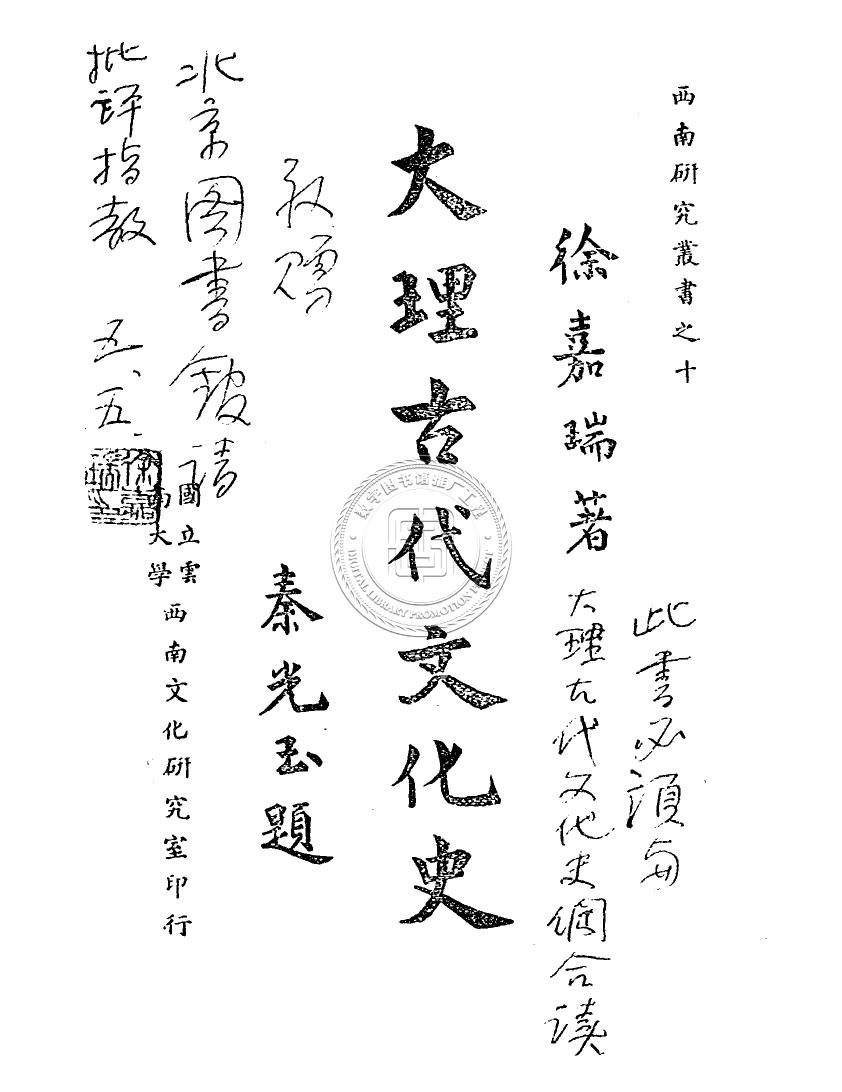 西南研究叢書之十
徐嘉瑞著
此書必須与
大理古代文化史綱合读
大理古代文化史
秦光玉題
敬贈
北京图書館请
批评指教 五、五、
國立雲南大學西南文化研究室印行
徐嘉瑞
数字图书馆推广工程
DIGITAL LIBRARY PROMOTION PROJECT